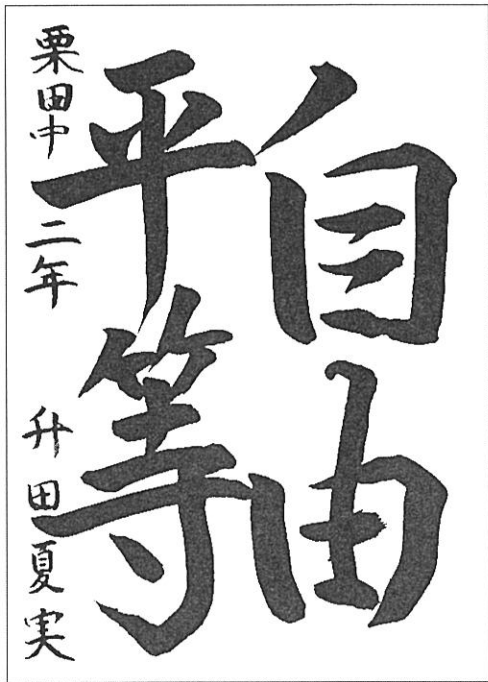 自由
平等
栗田中 二年 升田夏実